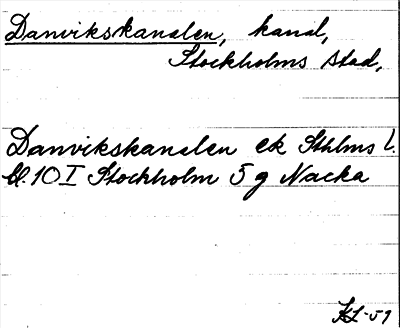 Danvikskanalen, kanal,
Stockholms stad,
Danvikskanalen ek Sthlms l.
bl. 10 I Stockholm 5 g Nacka
KL-59